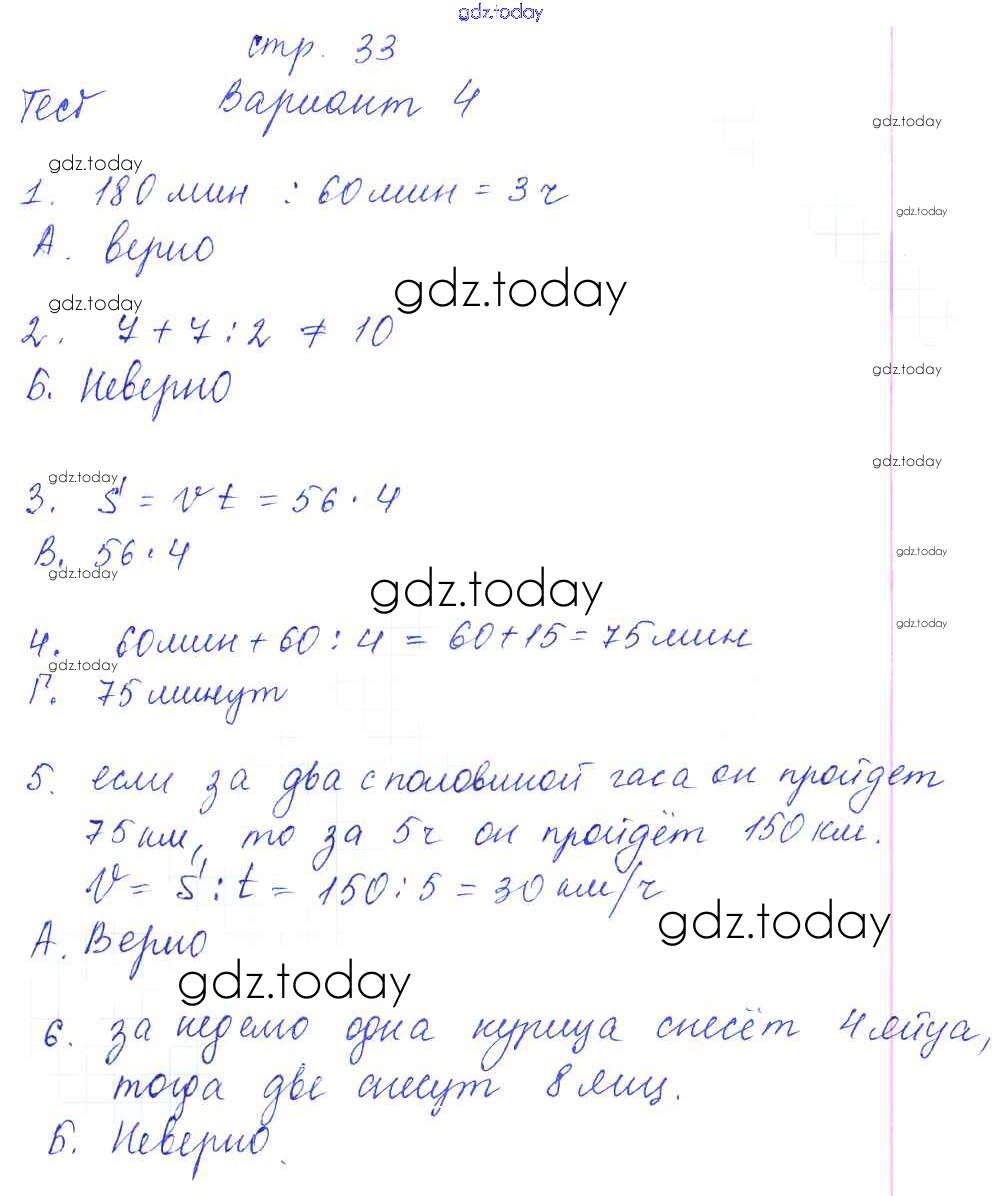 gdz.today
стр. 33
Тест Вариант 4
gdz.today
gdz.today
1. 180 мин : 60 мин = 3 ч
gdz.today
А. верно
gdz.today
gdz.today
2. 7 + 7 : 2 ≠ 10
gdz.today
Б. Неверно
gdz.today
gdz.today
3. S = v t = 56 · 4
В. 56 · 4
gdz.today
gdz.today
gdz.today
gdz.today
4. 60 мин + 60 : 4 = 60 + 15 = 75 мин
gdz.today
Г. 75 минут
5. если за два с половиной часа он пройдет
75 км, то за 5 ч он пройдёт 150 км.
V = S : t = 150 : 5 = 30 км/ч
gdz.today
А. Верно
gdz.today
6. за неделю одна курица снесёт 4 яйца,
тогда две снесут 8 яиц.
Б. Неверно.